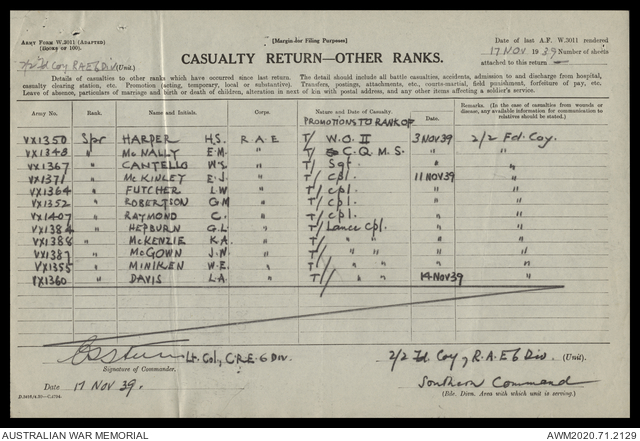 ARMY FORM W.3011 (ADAPTED)
(BOOKS OF 100).
[Margin for Filing Purposes]
Date of last A.F. W.3011 rendered
17 NOV 1939 Number of sheets
attached to this return —
2/2 Fd Coy R.A.E 6 Div (Unit).
CASUALTY RETURN—OTHER RANKS.
Details of casualties to other ranks which have occurred since last return. The detail should include all battle casualties, accidents, admission to and discharge from hospital,
casualty clearing station, etc. Promotion (acting, temporary, local or substantive). Transfers, postings, attachments, etc., courts-martial, field punishment, forfeiture of pay, etc.
Leave of absence, particulars of marriage and birth or death of children, alteration in next of kin with postal address, and any other items affecting a soldier's service.
Army No. Rank. Name and Initials. Corps. Nature and Date of Casualty. Remarks. (In the case of casualties from wounds or disease, any available information for communication to relatives should be stated.)
PROMOTIONS TO RANK OF
VX1350 Spr HARPER H.S. R.A.E T/ W.O. II 3 NOV 39 2/2 Fd. Coy.
VX1348 " McNALLY E.M. " T/ C.Q.M.S. " "
VX1367 " CANTELLO W.S. " T/ Sgt. " "
VX1371 " McKINLEY E.J. " T/ Cpl. 11 NOV 39 "
VX1364 " FUTCHER L.W " T/ Cpl. " "
VX1352 " ROBERTSON G.M " T/ Cpl. " "
VX1407 " RAYMOND C. " T/ Cpl. " "
VX1384 " HEPBURN G.L. " T/ Lance Cpl. " "
VX1388 " McKENZIE K.A. " T/ " " " "
VX1387 " McGOWN J.N. " T/ " " " "
VX1355 " MINIKEN W.E. " T/ " " " "
VX1360 " DAVIS L.A. " T/ " " 14 NOV 39 "
Lt. Col., C.R.E. 6 DIV.
Signature of Commander.
2/2 Fd Coy, R.A.E 6 Div. (Unit).
Date 17 NOV 39.
Southern Command
(Bde. Divn. Area with which unit is serving.)
AUSTRALIAN WAR MEMORIAL
AWM2020.71.2129